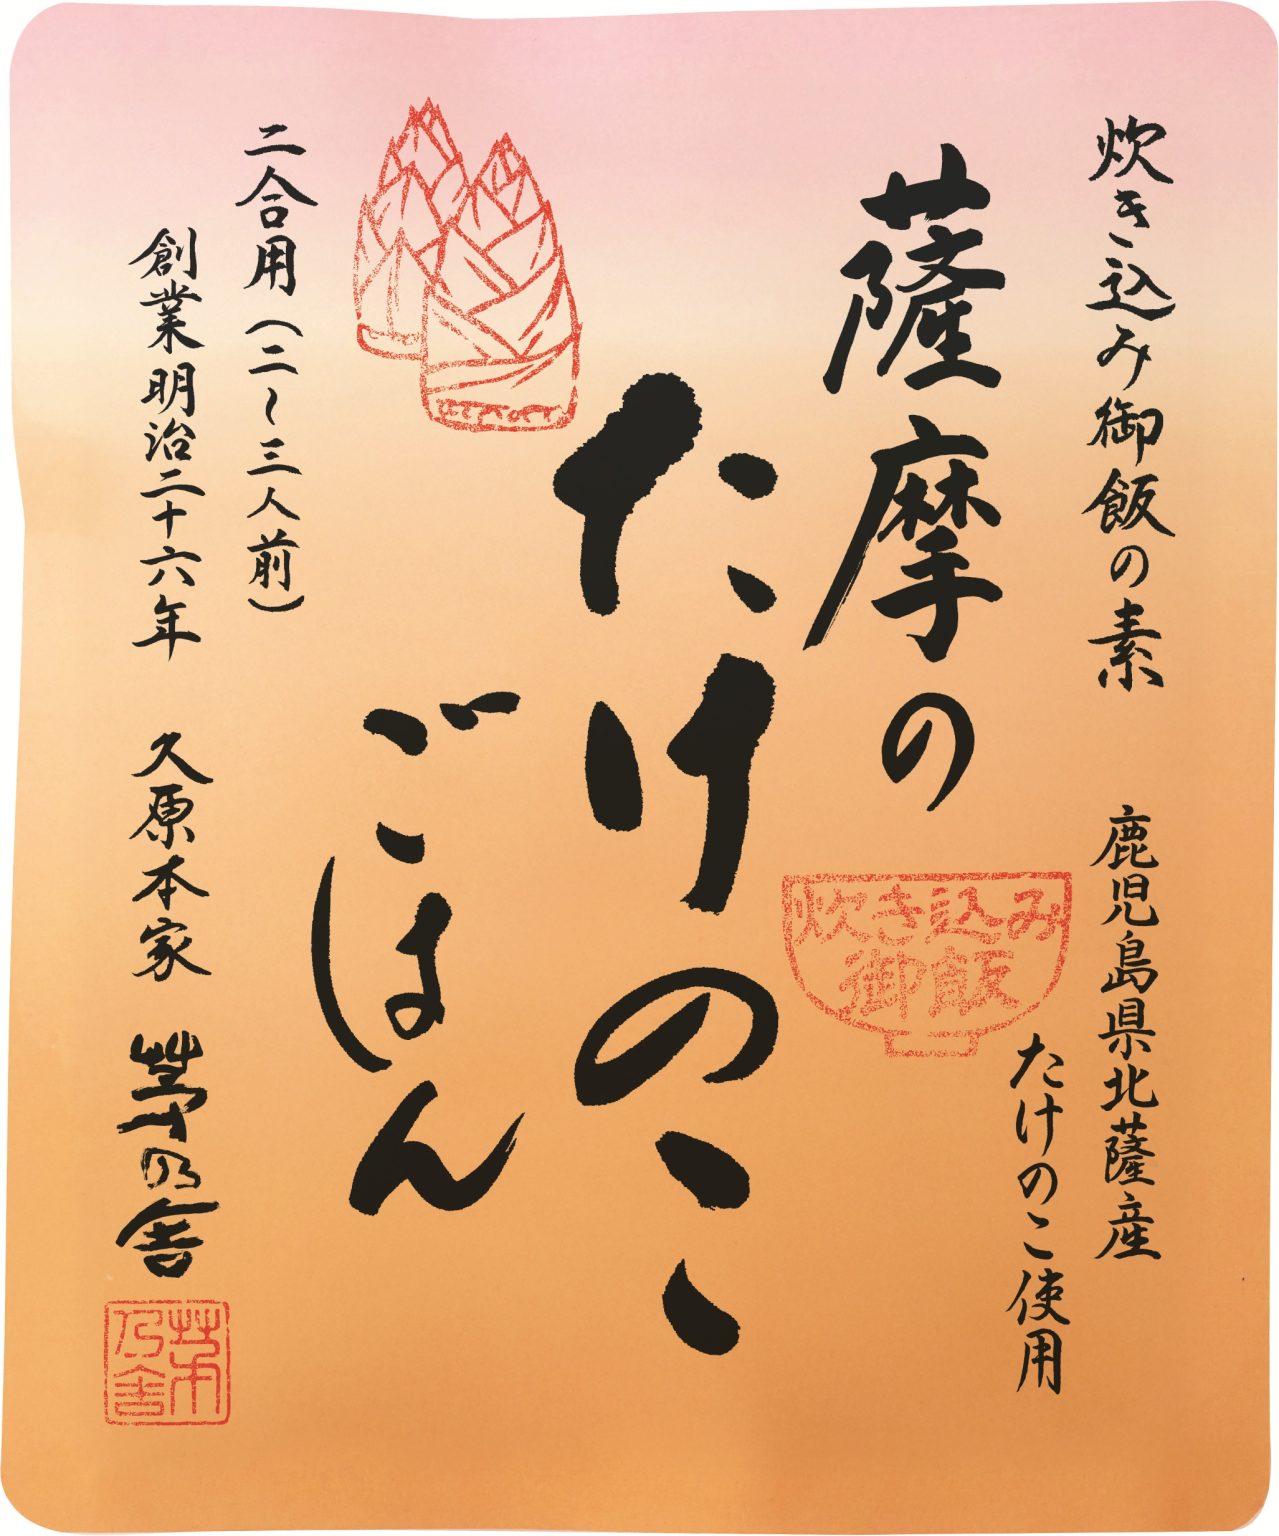 炊き込み御飯の素 鹿児島県北薩産
たけのこ使用
薩摩の
炊き込み
御飯
たけのこ
ごはん
二合用(二〜三人前)
創業明治二十六年 久原本家 茅乃舎
茅
乃舎